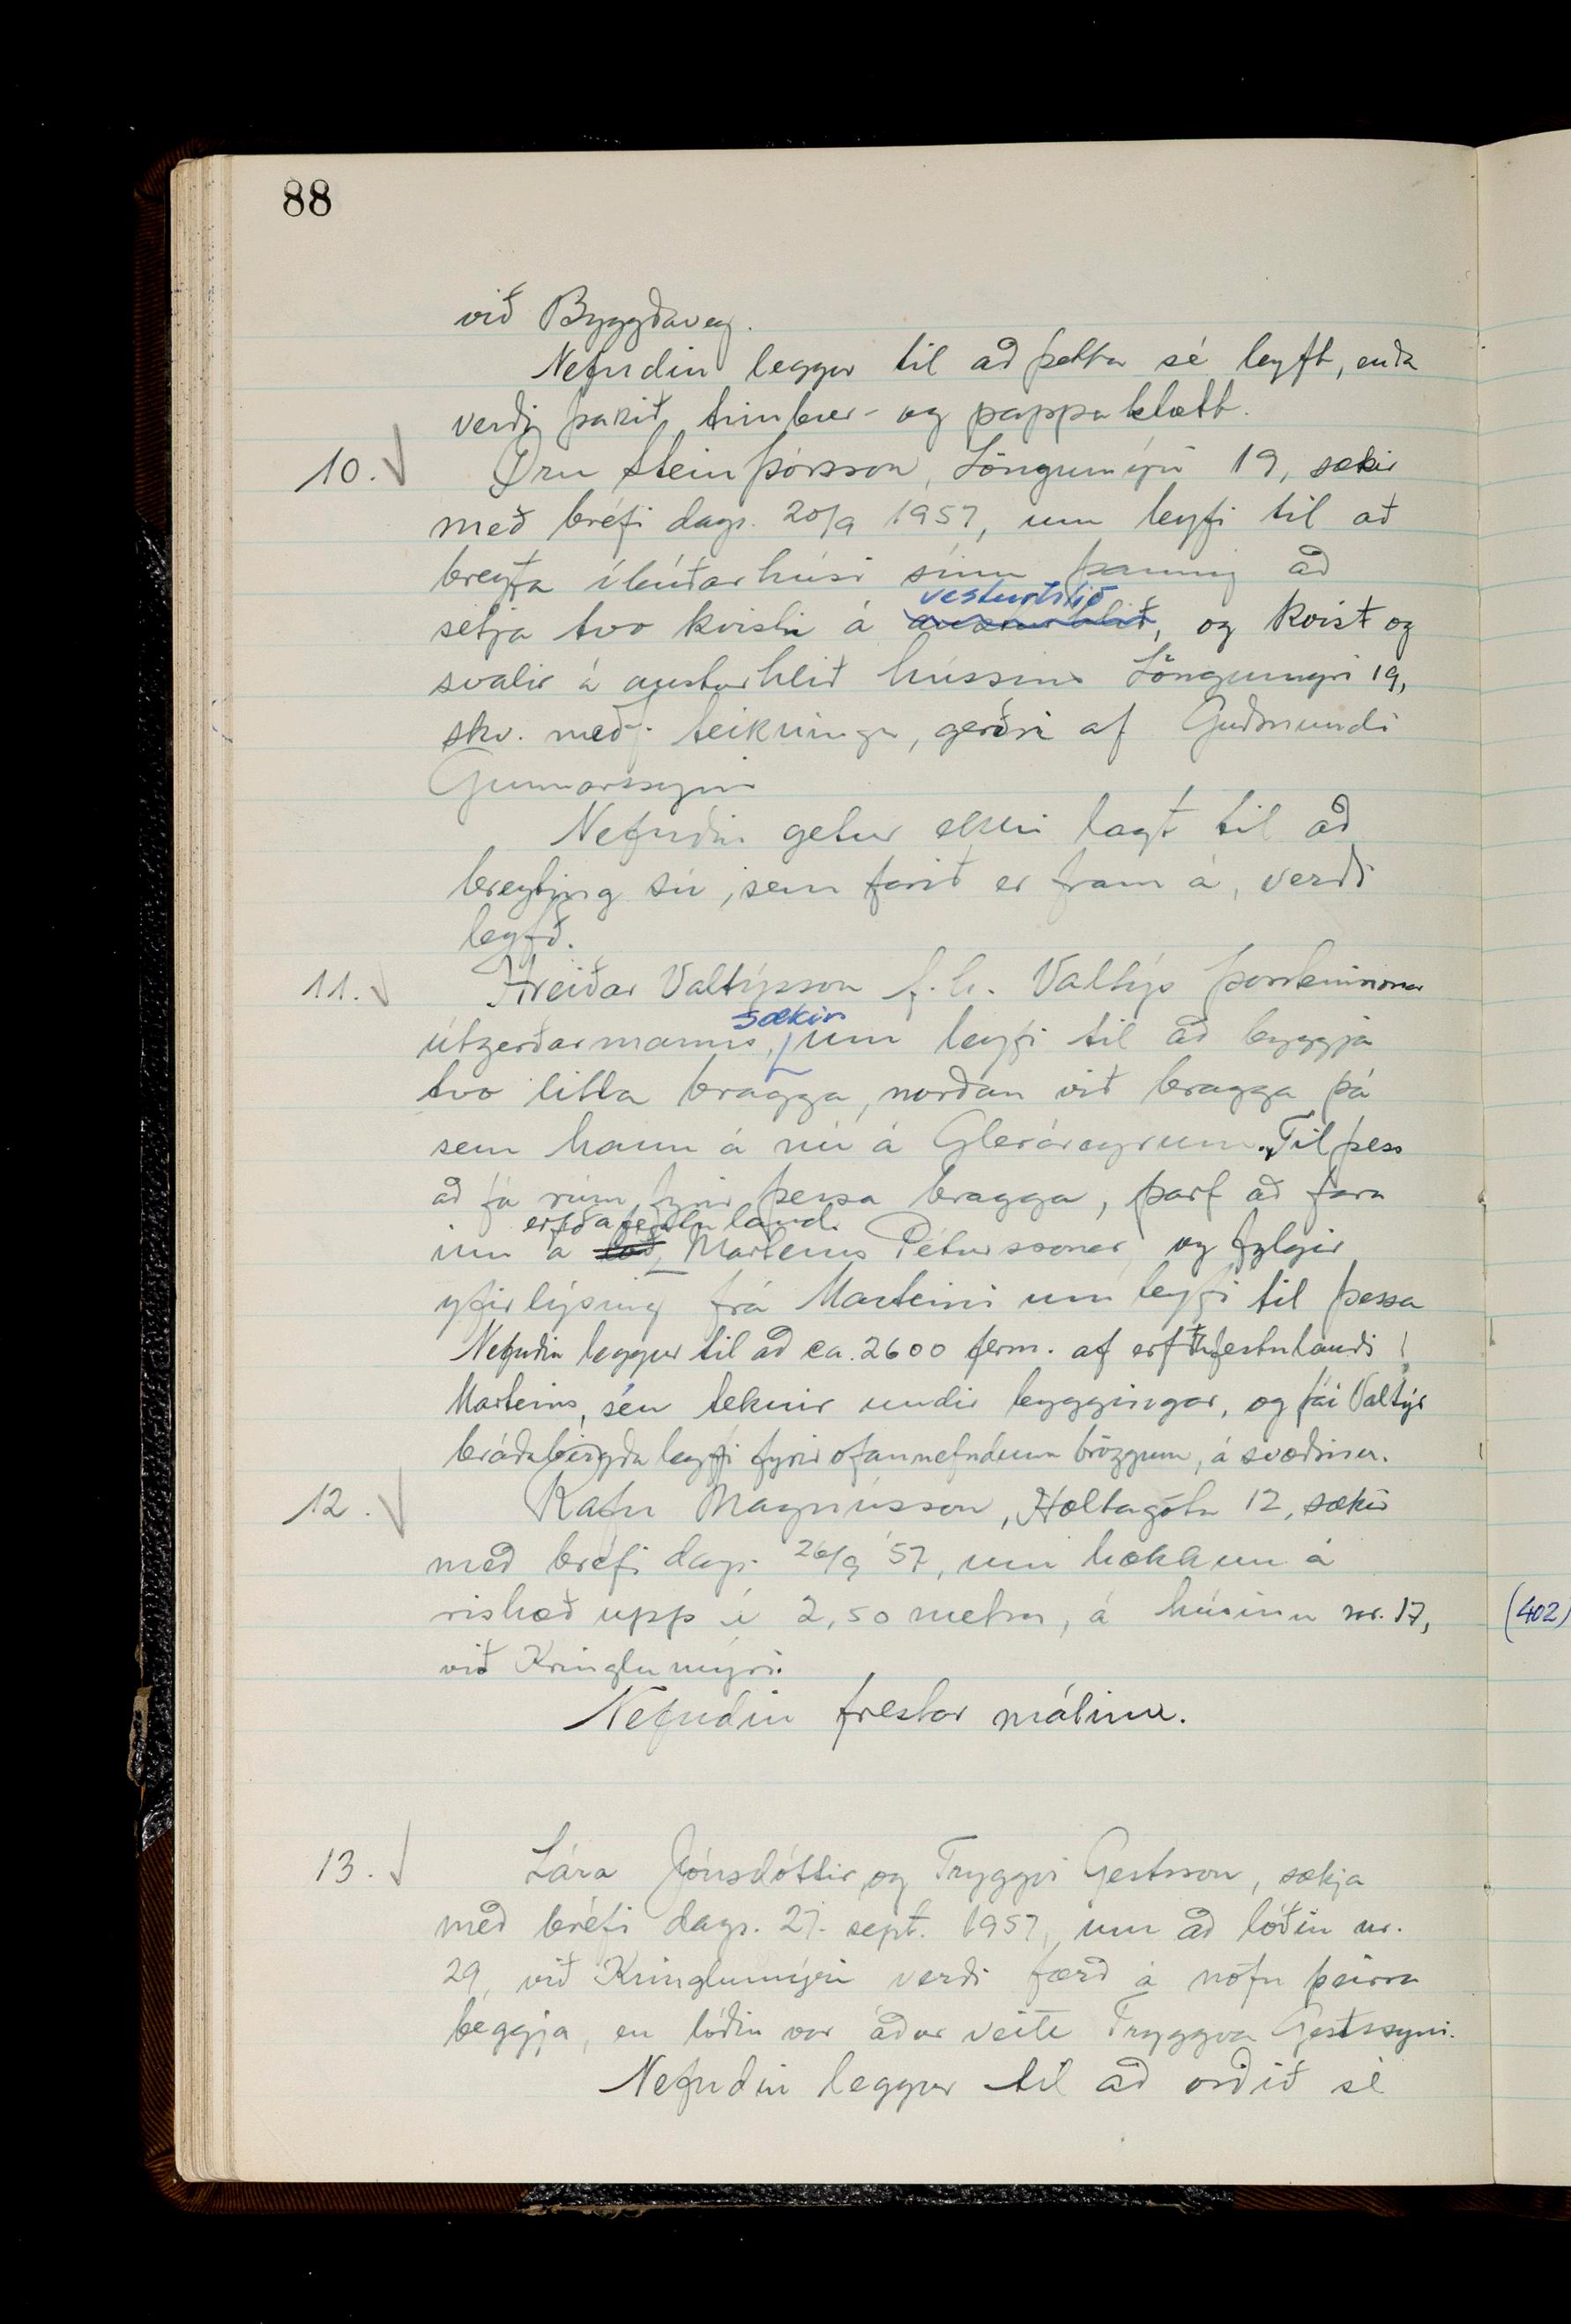 88
við Byggðaveg.
Nefndin leggur til að þetta sé leyft, enda
verði þakið timbur- og pappaklætt.
10. Örn Steinþórsson, Löngumýri 19, sækir
með bréfi dags. 20/9 1957, um leyfi til að
breyta íbúðarhúsi sínu þannig að
vesturhlið
setja tvo kvisti á austurhlið, og kvist og
svalir á austurhlið hússins Löngumýri 19,
skv. meðf. teikningu, gerðri af Guðmundi
Gunnarssyni
Nefndin getur ekki lagt til að
breyting sú, sem farið er fram á, verði
leyfð.
11. Hreiðar Valtýsson f.h. Valtýs Þorsteinssonar
sækir
útgerðarmanns, um leyfi til að byggja
tvo litla bragga, norðan við bragga þá
sem hann á nú á Gleráreyrum. Til þess
að fá rúm fyrir þessa bragga, þarf að fara
erfðafestuland
inn á lóð, Marteins Péturssonar, og fylgir
yfirlýsing frá Marteini um leyfi til þessa
Nefndin leggur til að ca. 2600 ferm. af erfðafestulandi
Marteins, séu teknir undir byggingar, og fái Valtýr
bráðabirgða leyfi fyrir ofannefndum bröggum, á svæðinu.
12. Rafn Magnússon, Holtagötu 12, sækir
með bréfi dags. 26/9 57, um hækkun á
rishæð upp í 2,50 metra, á húsinu nr. 17,
(402)
við Kringlumýri.
Nefndin frestar málinu.
13. Lára Jónsdóttir, og Tryggvi Gestsson, sækja
með bréfi dags. 27. sept. 1957, um að lóðin nr.
29, við Kringlumýri verði færð á nöfn þeirra
beggja, en lóðin var áður veitt Tryggva Gestssyni.
Nefndin leggur til að orðið sé